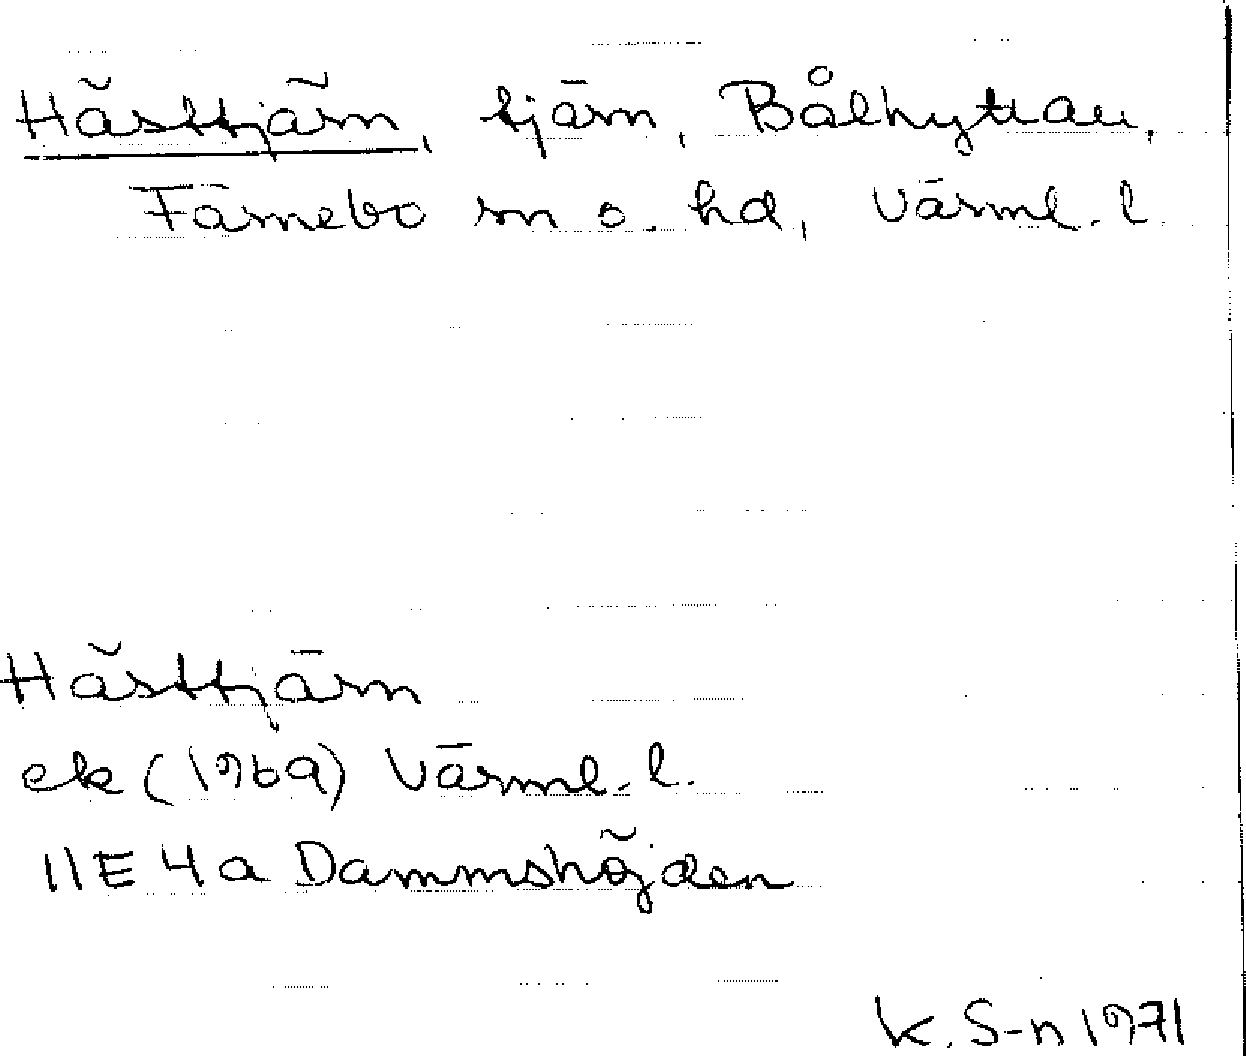 Hästtjärn, tjärn, Bålhyttan,
Färnebo sn o. hd, Värml. l.
Hästtjärn
ek (1969) Värml. l.
11E 4a Dammshöjden
K. S-n 1971